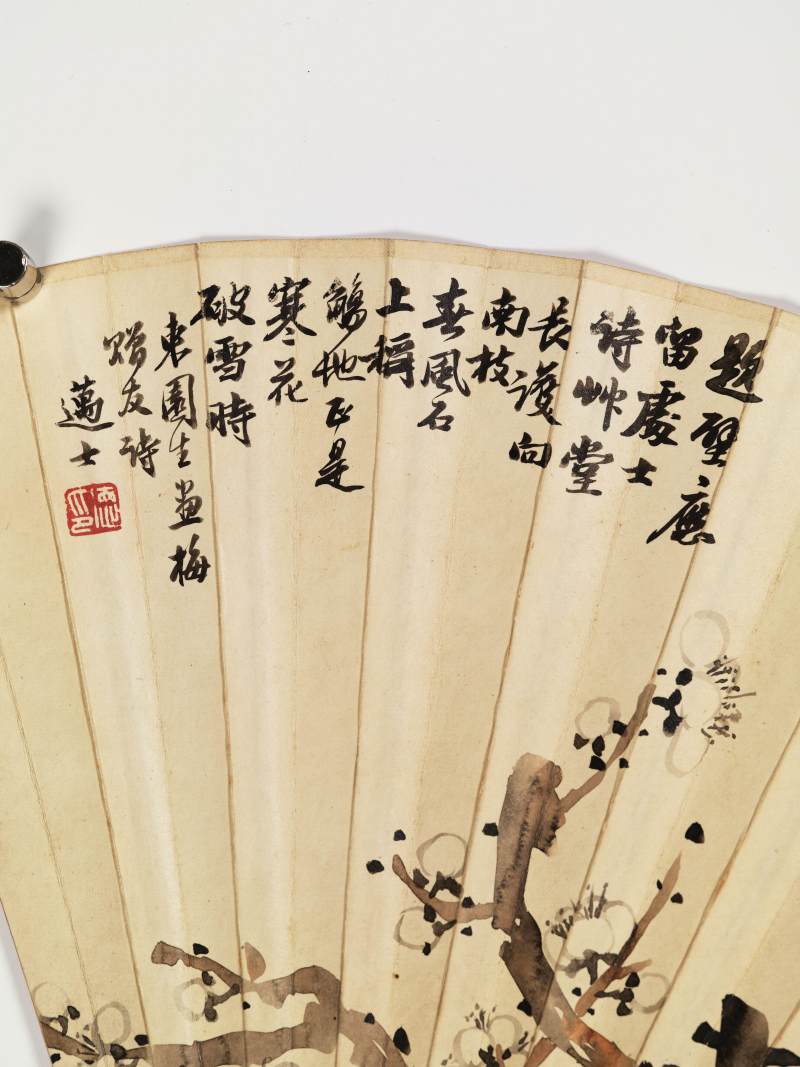 題壁應
留處士
詩艸堂
長護向
南枝
春風石
上稱
觴地正是
寒花
破雪時
東園生畫梅
贈友詩
邁士